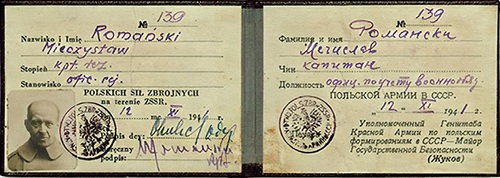 № 139
Nazwisko i Imię Romański
Mieczysław
Stopień kpt. rez.
Stanowisko ofic. rej.
POLSKICH SIŁ ZBROJNYCH
na terenie ZSSR.
12 XI 1941
podpis:
№ 139
Фамилия и имя Романски
Мечислав
Чин капитан
Должность офиц. по учету военнообяз.
ПОЛЬСКОЙ АРМИИ В СССР
"12" XI 1941 г.
Уполномоченный Генштаба
Красной Армии по польским
формированиям в СССР—Майор
Государственной Безопасности
(Жуков)